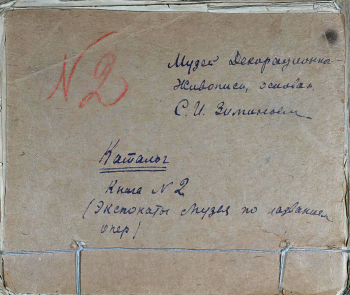 N2
Музей Декорационно-
Живописи, основан
С. И. Зиминым
Каталог
Книга N 2
(Экспонаты музея по названием
опер)